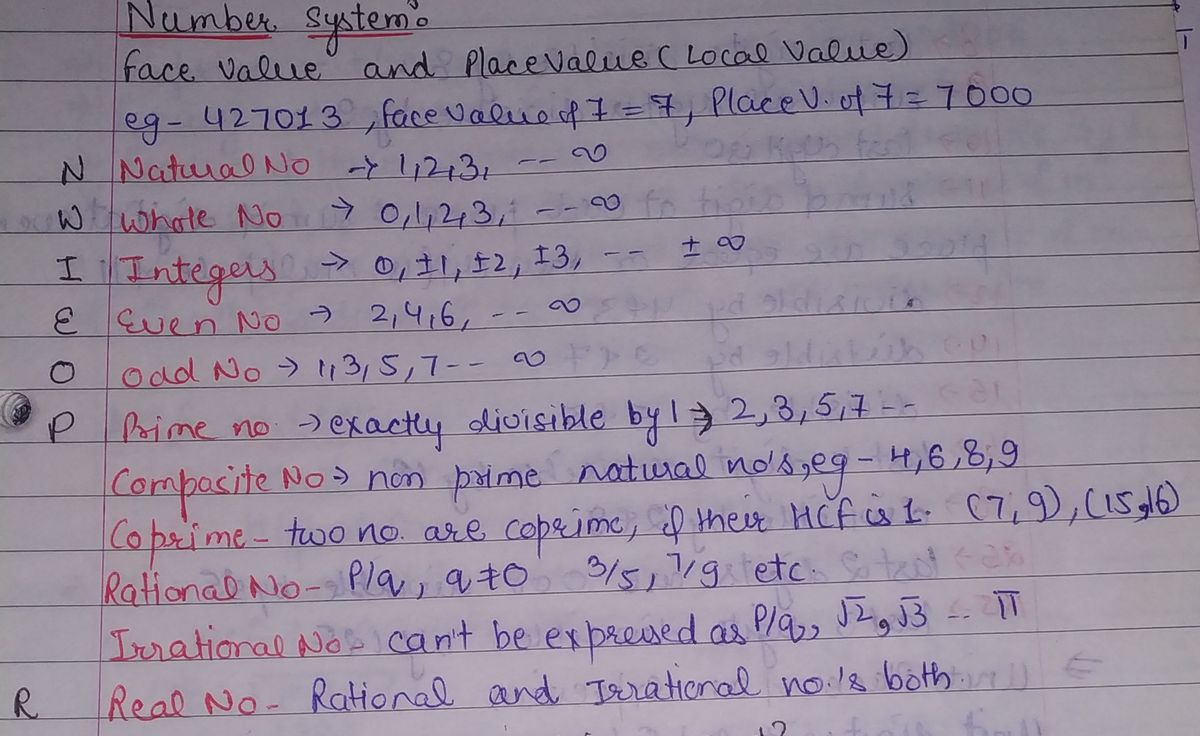 Number System:
Face Value and Place Value (Local Value)
eg- 427013, face value of 7 = 7, Place V. of 7 = 7000
N Natural No → 1,2,3, -- ∞
W Whole No → 0,1,2,3, --- ∞
I Integers → 0, ±1, ±2, ±3, -- ± ∞
E Even No → 2,4,6, -- ∞
O Odd No → 1,3,5,7-- ∞
P Prime no. → exactly divisible by 1 → 2,3,5,7--
Composite No → non prime natural no's, eg - 4,6,8,9
Coprime - two no. are coprime, if their HCF is 1. (7,9), (15,16)
Rational No - P/q, q≠0 3/5, 7/9 etc.
Irrational No - can't be expressed as P/q, √2, √3 -- π
R Real No - Rational and Irrational no.'s both.